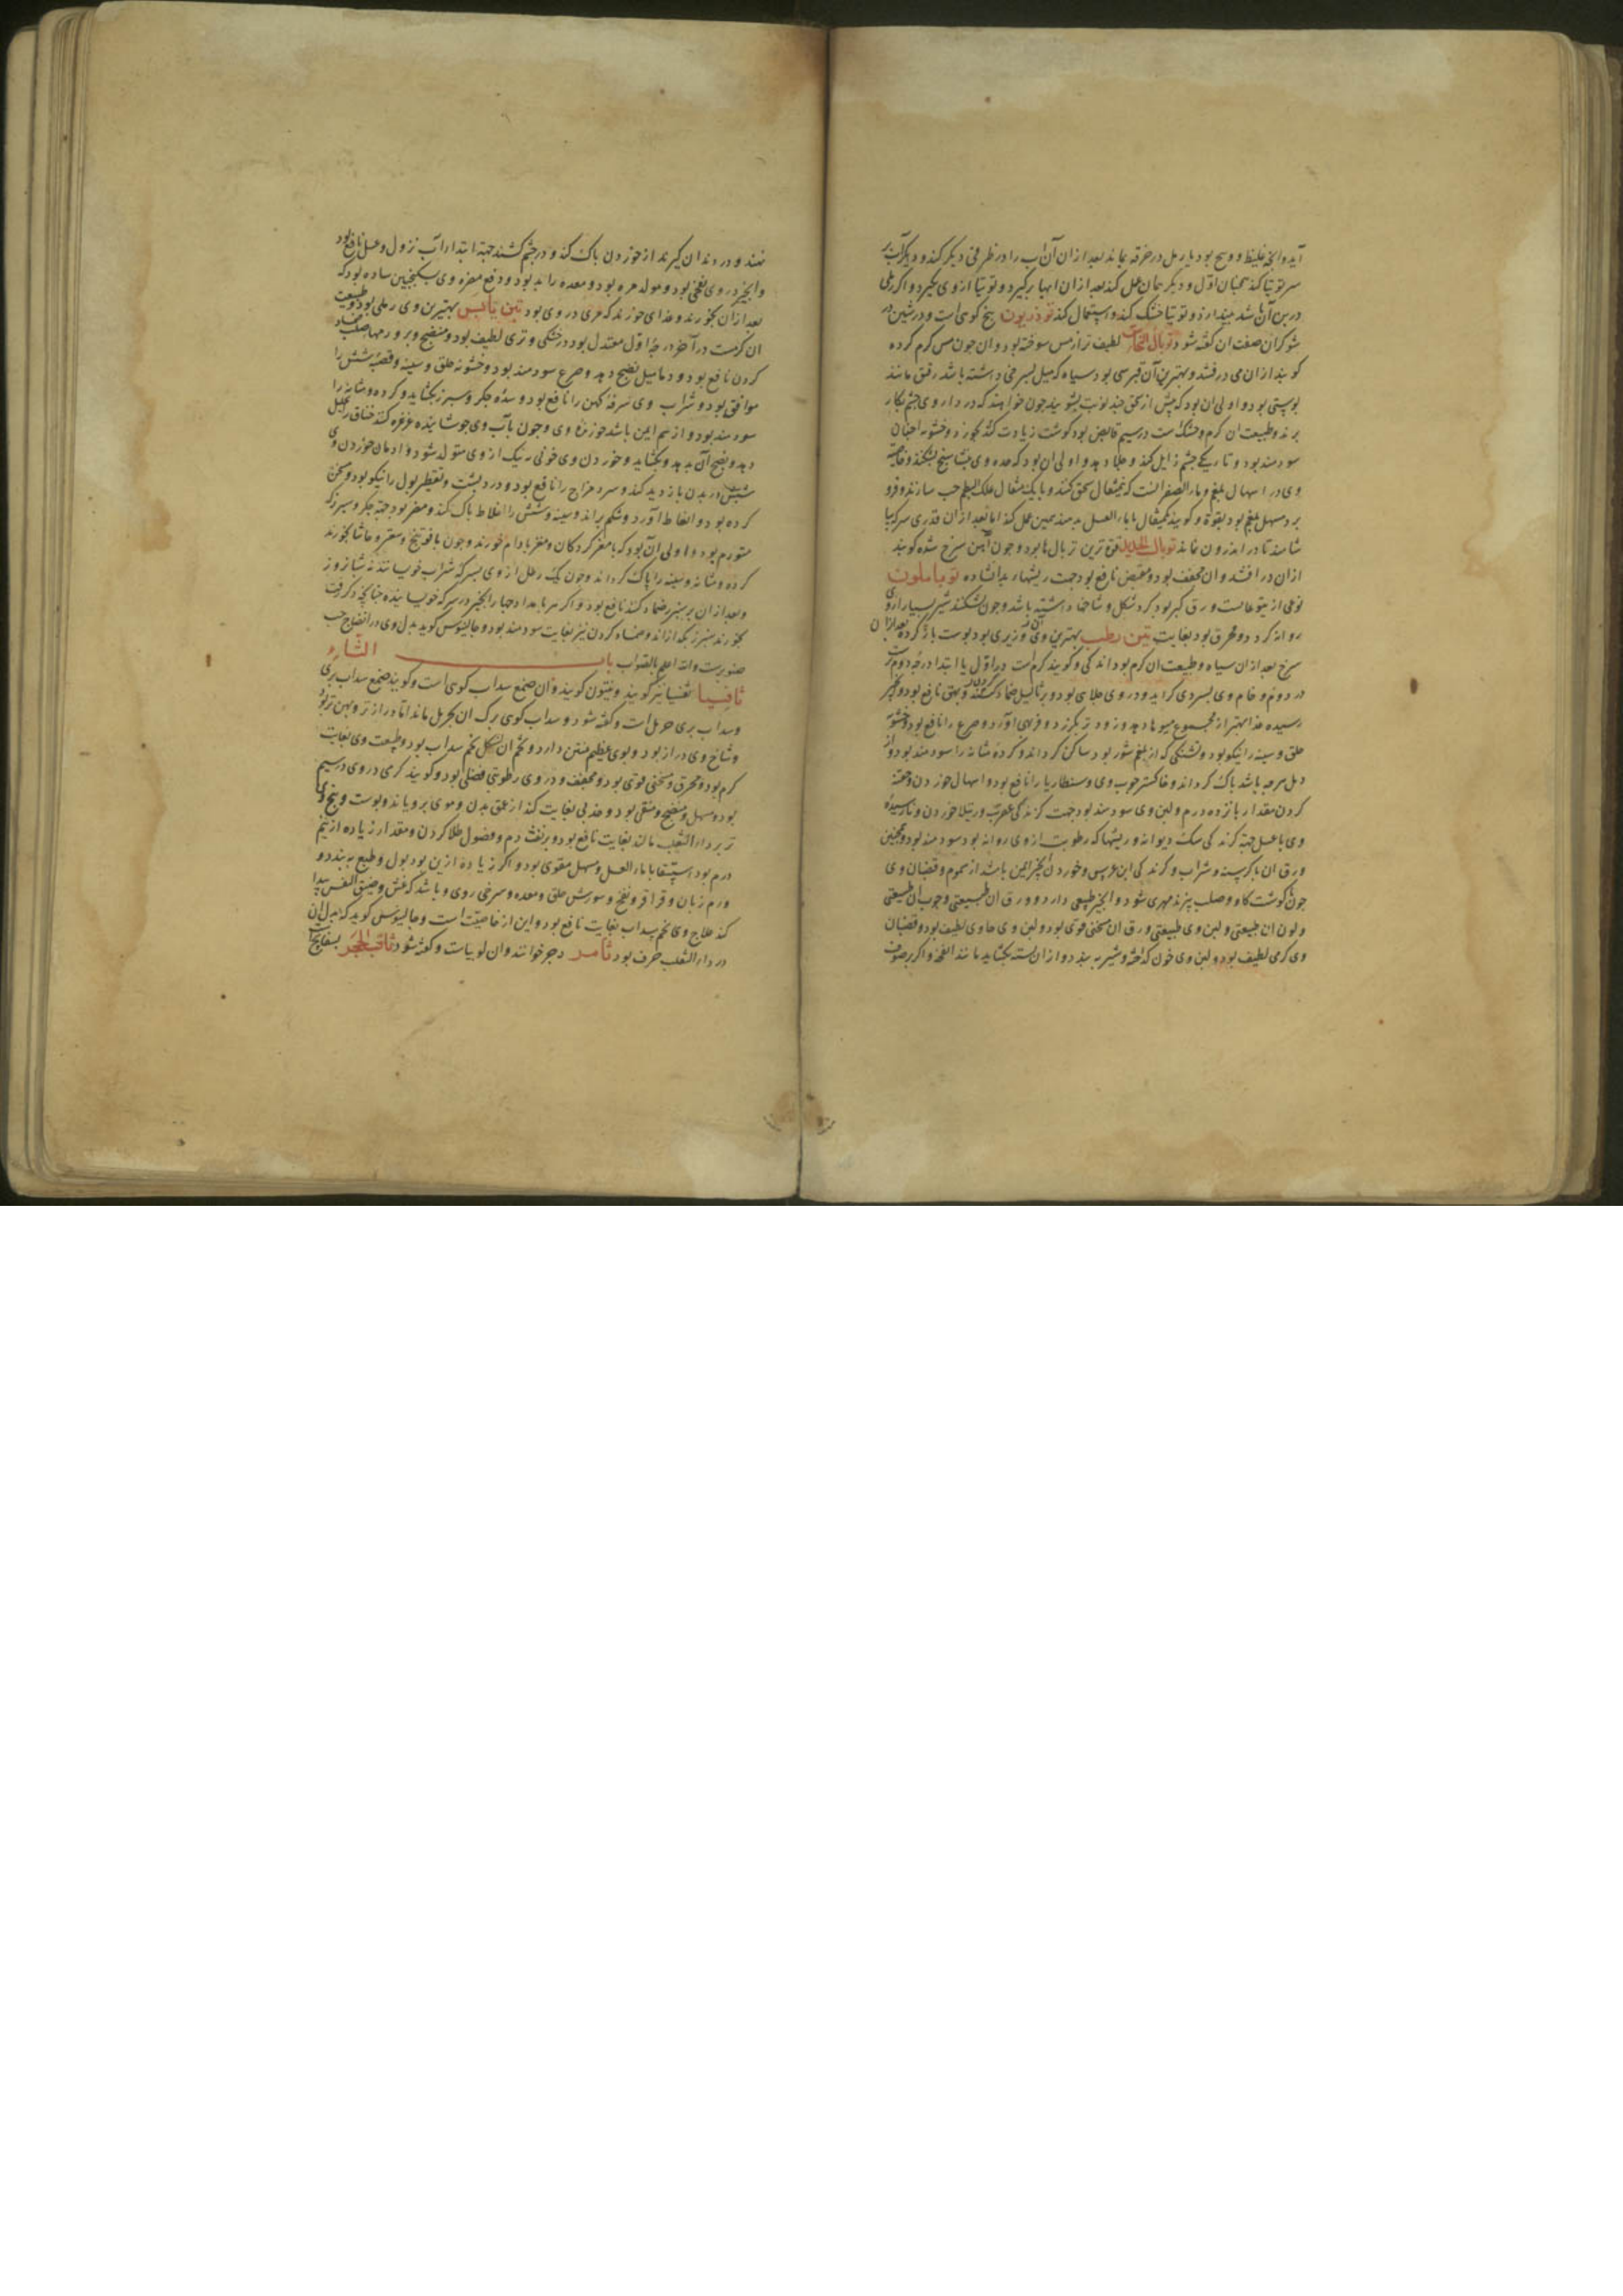 آید وآنچه غلیظ و وسخ بود با رمل در خرقه بماند بعد ازان آن آب را در ظرفی دیکر کند و دیکر آب بر
سر توتیا کند همچنان اول و دیکر همان عمل کند بعد ازان آبها برکیرد و توتیا ازوی بکیرد و اکر رملی
در بن آن باشد بیندازد و توتیا خشک کند و استعمال کند تو ذریون بیخ کوهی است و در شین در
شوکران صفت ان کفته شود توبال النحاس لطیف تر از مس سوخته بود وان جون مس کرم کرده
کوبند ازان می درفشد و بهترین آن قبرسی بود سیاه که میل بسرخی داشته باشد رقیق مانند
پوستی بود و اولی ان بود که پیش از سحق چند نوبت بشویند جون خواهند که در داروی چشم بکار
برند و طبیعت ان کرم و خشکست در سیم قابض بود کوشت زیادت کند بخورد و خشونه اجفان
سودمند بود و تاریکی چشم زایل کند و جلا دهد و اولی ان بود که معده وی بنشاسته بشکند و خاصیة
وی در اسهال بلغم و ماء الصفر انست که نیمثقال سحق کنند و با یک مثقال علک البطم حب سازند و فرو
برد مسهل بلغم بود بقوة و کویند نیمثقال با ماء العسل بدهند همین عمل کند اما بعد ازان قدری سرکه بیا
شامند تا در اندرون نماند توبال الحدید قوی ترین توبال ها بود و جون آهن سرخ شده کوبند
ازان درافتد وان مجفف بود و مقبض نافع بود جهت ریشهاء بد انشاده توماملون
نوعی از یتوعاتست ورق کبر بود کرد شکل و شاخها داشته باشد و جون بشکنند شیر بسیار ازوی
روانه کردد و محرق بود بغایت تین رطب بهترین وی وزیری بود پوست باز کرده بعد ازان
سرخ بعد ازان سیاه و طبیعت ان کرم بود اندکی و کویند کرم است در اول یا ابتدا درجه دوم تر
در دوم و خام وی بسردی کراید و در وی جلای بود و بر ثالیل ضماد کنند و بهق نافع بود و انجیر
رسیده غذا بهتر از مجموع میوها دهد و زود تر بکذرد و فربهی آورد و صرع را نافع بود و خشونة
حلق و سینه را نیکو بود و تشنکی که از بلغم شور بود ساکن کرداند و کرده مثانه را سودمند بود و از
رمل هرچه باشد پاک کرداند و خاکستر چوب وی دوسنطاریا را نافع بود و اسهال خوردن وحقنه
کردن مقدار پانزده درم و لبن وی سودمند بود جهت کزندکی عقرب و رتیلا خوردن و نارسیده
وی با عسل جهة کزندکی سک دیوانه و ریشها که رطوبت ازوی روانه بود سودمند بود و همچنین
ورق ان با کرسنه و شراب و کزندکی ابن عرس و خوردن انجیر ایمن باشد از سموم و قضبان وی
جون با کوشت کاو و صلب پزند مهری شود و انجیر طبعی دارد و ورق ان طبیعتی و چوب ان طبیعتی
و لون ان طبیعتی و لبن وی طبیعتی ورق ان مسخنی قوی بود و لبن وی حاوی لطیف بود و قضبان
وی کرمی لطیف بود و لبن وی خون که افتد و شیر ببندد و ازان بسته بکشاید مانند انفحه و اکر بر صوف
نهند و در دندان کیرند از خوردن پاک کند و در چشم کشند جهة ابتداء آب نزول و عسل نافع بود
وانجیر در وی نفخی بود و مولد مره بود و معده را بد بود و دفع مضره وی بسکنجبین ساده بود که
بعد ازان بخورند و غذای خورند که مری در وی بود تین یابس بهترین وی رملی بود و طبیعت
ان کرمست در آخر درجهٔ اول معتدل بود در خشکی و تری لطیف بود و منضج و بر ورمها صلب ضماد
کردن نافع بود و دمامیل نضج دهد و صرع سودمند بود و خشونه حلق و سینه و قصبهٔ شش را
موافق بود و شراب وی سرفهٔ کهن را نافع بود و سدهٔ جکر و سپرز بکشاید و کرده و مثانه را
سودمند بود و از سم ایمن باشد خورندهٔ وی و جون بآب وی جوشانیده غرغره کنند خناق را تحلیل
دهد و نضج آن بدهد و بکشاید و خوردن وی خونی نه نیک ازوی متولد شود و ادمان خوردن وی
شپش در بدن بازدید کند و سرد مزاج را نافع بود و درد پشت و تقطیر بول را نیکو بود و مسخن
کرده بود و انعاظ آورد و شکم براند و سینه و شش را اخلاط پاک کند و مضر بود جهة جکر و سپرز که
متورم بود و اولی آن بود که با مغز کردکان و مغز بادام خورند و جون با فوتنج و سعتر و حاشا بخورند
کرده و مثانه و سینه را پاک کرداند و جون یک رطل ازوی بسرکه شراب خوسانند نه شبانروز
وبعد ازان بر سپرز ضماد کنند نافع بود و اکر هر بامداد چهار انجیر در سرکه خیسانیده چنانچه ذکر رفت
بخورند سپرز بکدازاند و ضماد کردن نیز بغایت سودمند بود و جالینوس کوید بدل وی در انضاج حب
صنوبرست والله اعلم بالصواب باب الثاء
ثافسیا ثفسیا نیز کویند و ینتون کویند وان صمغ سداب کوهی است و کویند صمغ سداب بری
وسداب بری حرمل است و کفته شود و سداب کوهی برک ان بحرمل ماند اما دراز تر و پهن تر بود
و شاخ وی دراز بود و بوی عظیم منتن دارد و تخم ان بشکل تخم سداب بود و طبیعت وی بغایت
کرم بود و محرق و مسخنی قوی بود و مجفف و در وی رطوبتی فضلی بود و کویند کرمی در وی در سیم
بود و مسهل و منضج و منقی بود و جذبی بغایت کند از عمق بدن و موی برویاند و پوست و بیخ وی
تر بر داء الثعلب مالند بغایت نافع بود و بر نفث دم و فضول طلا کردن و مقدار زیاده از نیم
درم بود استسقا با ماء العسل و مسهل مقوی بود و اکر زیاده ازین بود بول و طبع ببندد و
ورم زبان و قراقر و نفخ و سوزش حلق و معده و سرخی روی و باشد که غشی و ضیق النفس پیدا
کند علاج وی تخم سداب بغایت نافع بود و این از خاصیت است و جالینوس کوید که بدل ان
در داء الثعلب حرف بود ثامر دجر خوانند وان لوبیاست و کفته شود ثاقب الحجر بسفایج است